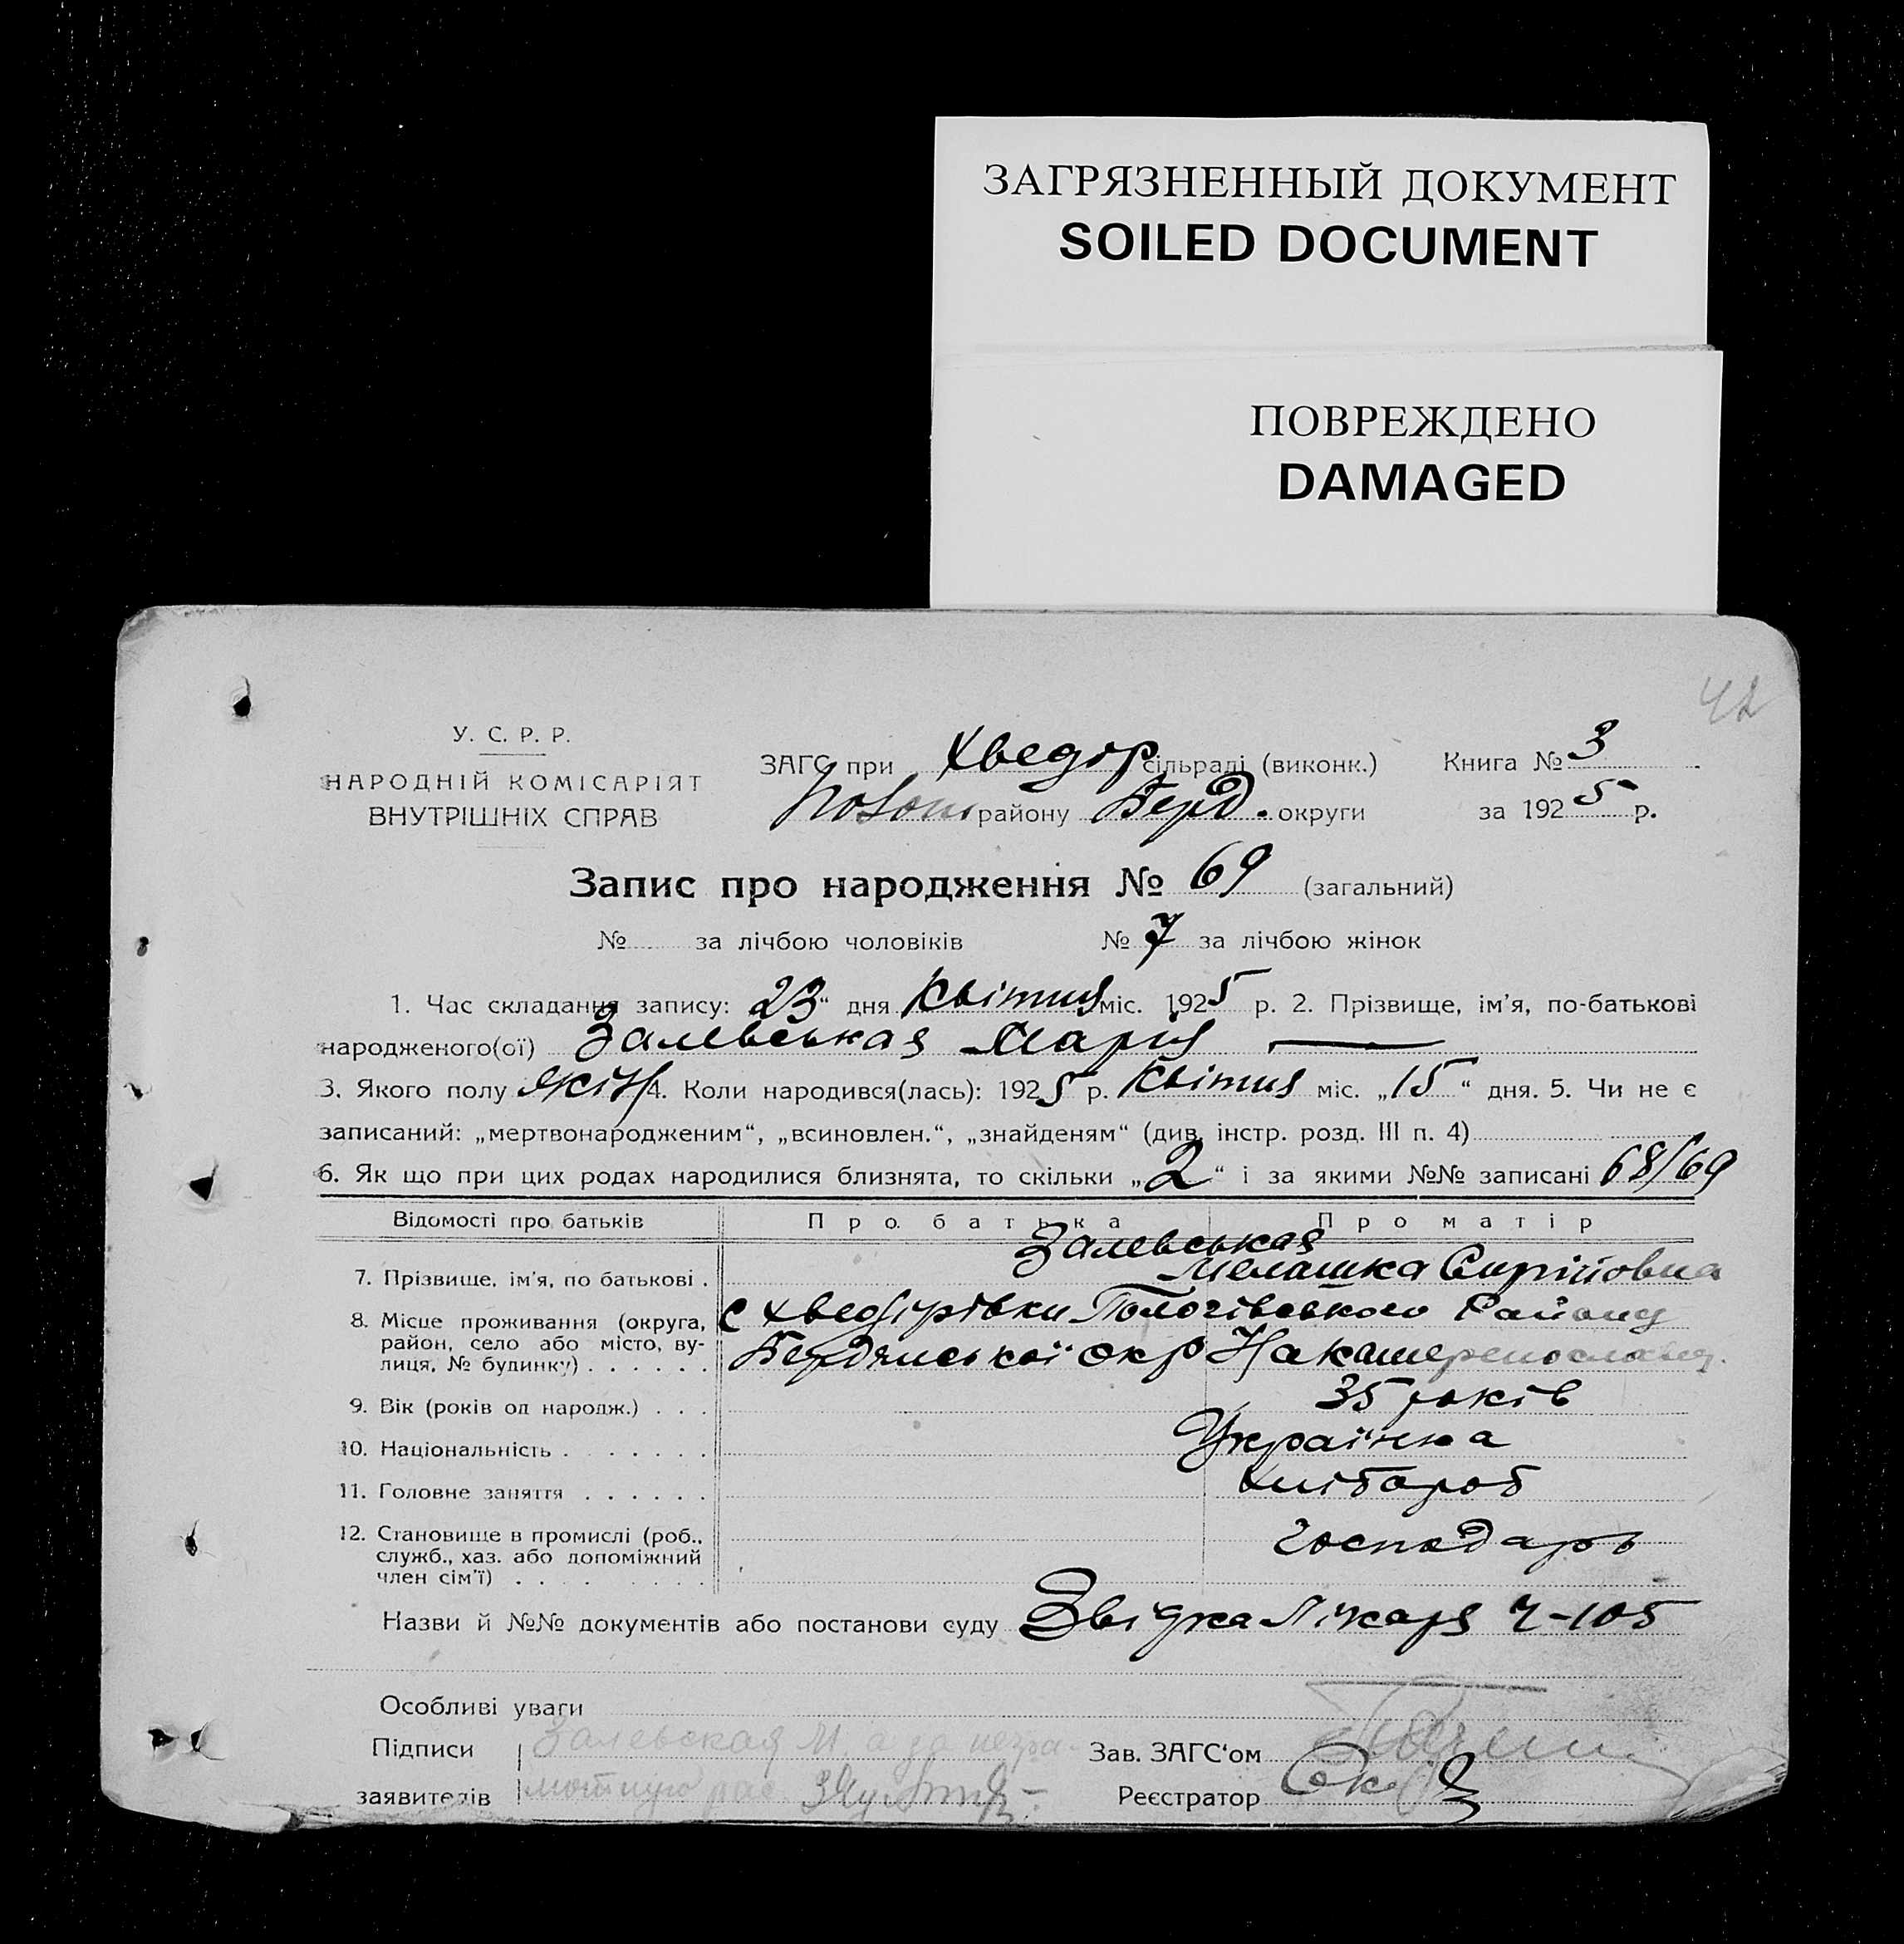 ЗАГРЯЗНЕННЫЙ ДОКУМЕНТ
SOILED DOCUMENT
ПОВРЕЖДЕНО
DAMAGED
42
У. С. Р. Р.
НАРОДНІЙ КОМІСАРІЯТ
ВНУТРІШНІХ СПРАВ
ЗАГС при Хведор сільраді (виконк.)
району Берд. округи
Книга № 3
за 1925 р.
Запис про народження № 69 (загальний)
№ за лічбою чоловіків № 7 за лічбою жінок
1. Час складання запису: 23" дня Квітня міс. 1925 р. 2. Прізвище, ім'я, по-батькові
народженого(ої) Залевськая Марія —
3. Якого полу жін 4. Коли народився(лась): 1925 р. Квітня міс. „15" дня. 5. Чи не є
записаний: „мертвонародженим", „всиновлен.", „знайденям" (див. інстр. розд. III п. 4)
6. Як що при цих родах народилися близнята, то скільки „2" і за якими №№ записані 68/69
Відомості про батьків Про батька Про матір
Залевськая
7. Прізвище, ім'я, по батькові . Мелашка
8. Місце проживання (округа, с Хведорівки Пологівського Району
район, село або місто, ву-
лиця, № будинку) . . . . . . Бердянської окр
9. Вік (років од народж.) . . . 35 років
10. Національність . . . . . . . Українка
11. Головне заняття . . . . . . Хлібороб
12. Становище в промислі (роб., Господарь
служб., хаз. або допоміжний
член сім'ї) . . . . . . . .
Назви й №№ документів або постанови суду Звідка Лікаря ч-105
Особливі уваги
Підписи Залевская М. а за негра-
заявителів мотную рас
Зав. ЗАГС'ом
Реєстратор